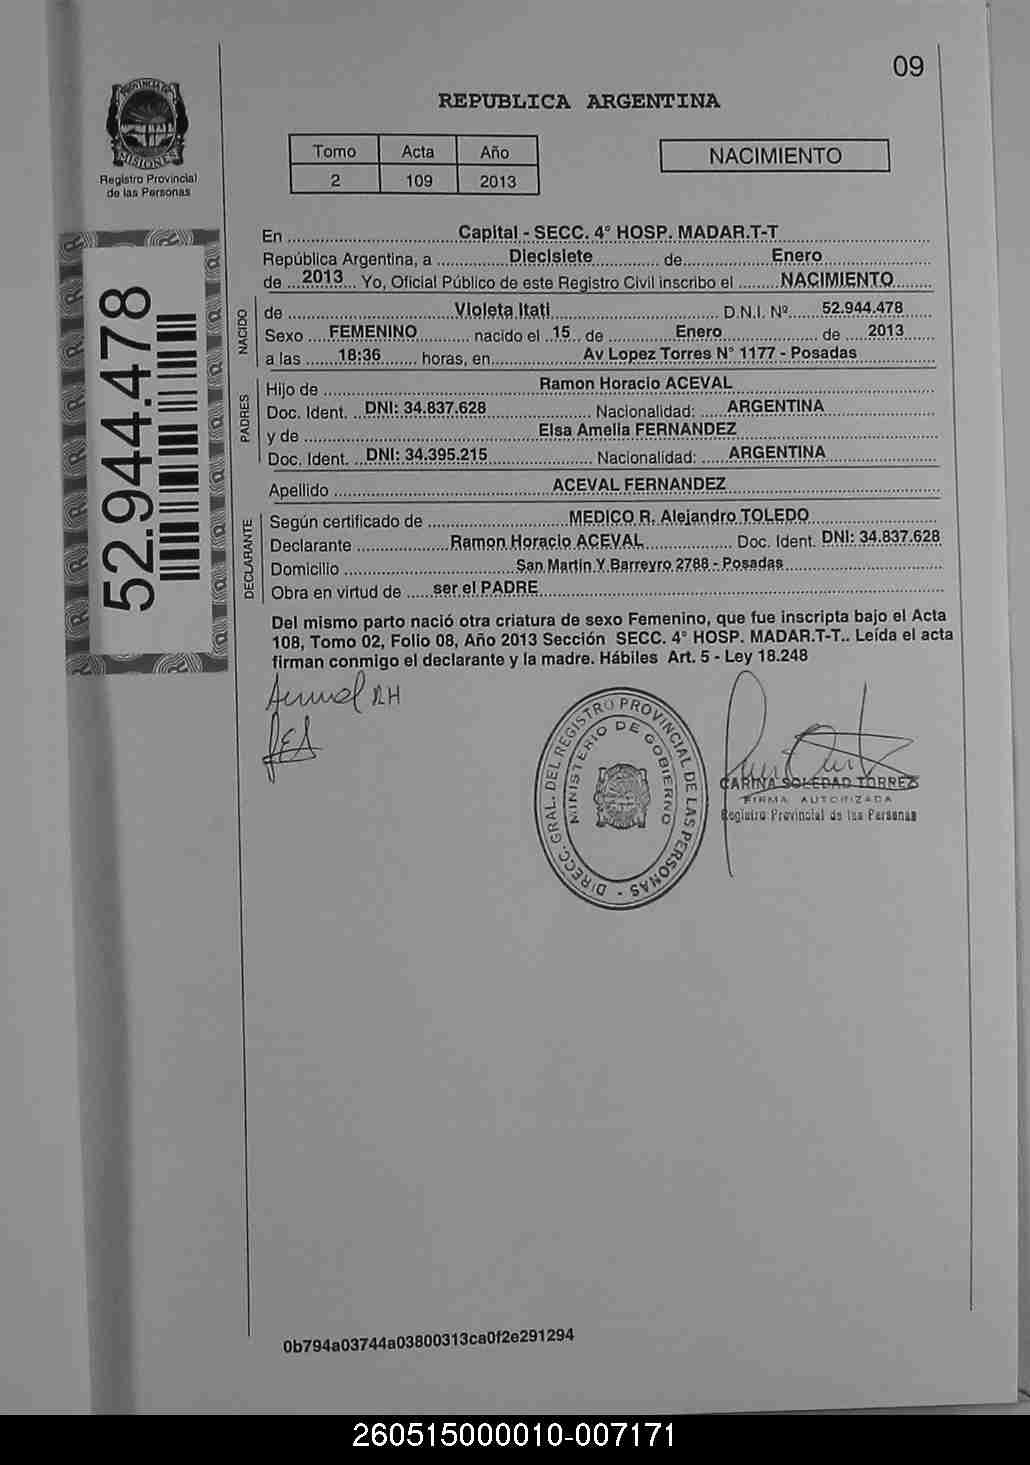 09
PROVINCIA DE
MISIONES
Registro Provincial
de las Personas
REPUBLICA ARGENTINA
Tomo Acta Año
2 109 2013
NACIMIENTO
52.944.478
En Capital - SECC. 4° HOSP. MADAR.T-T
República Argentina, a Diecisiete de Enero
de 2013 Yo, Oficial Público de este Registro Civil inscribo el NACIMIENTO
NACIDO
de Violeta Itati D.N.I. Nº 52.944.478
Sexo FEMENINO nacido el 15 de Enero de 2013
a las 18:36 horas, en Av Lopez Torres N° 1177 - Posadas
PADRES
Hijo de Ramon Horacio ACEVAL
Doc. Ident. DNI: 34.837.628 Nacionalidad: ARGENTINA
y de Elsa Amelia FERNANDEZ
Doc. Ident. DNI: 34.395.215 Nacionalidad: ARGENTINA
Apellido ACEVAL FERNANDEZ
DECLARANTE
Según certificado de MEDICO R. Alejandro TOLEDO
Declarante Ramon Horacio ACEVAL Doc. Ident. DNI: 34.837.628
Domicilio San Martin Y Barreyro 2788 - Posadas
Obra en virtud de ser el PADRE
Del mismo parto nació otra criatura de sexo Femenino, que fue inscripta bajo el Acta
108, Tomo 02, Folio 08, Año 2013 Sección SECC. 4° HOSP. MADAR.T-T.. Leída el acta
firman conmigo el declarante y la madre. Hábiles Art. 5 - Ley 18.248
DIRECC. GRAL. DEL REGISTRO PROVINCIAL DE LAS PERSONAS -
MINISTERIO DE GOBIERNO
CARINA SOLEDAD TORREZ
FIRMA AUTORIZADA
Registro Provincial de las Personas
0b794a03744a03800313ca0f2e291294
260515000010-007171